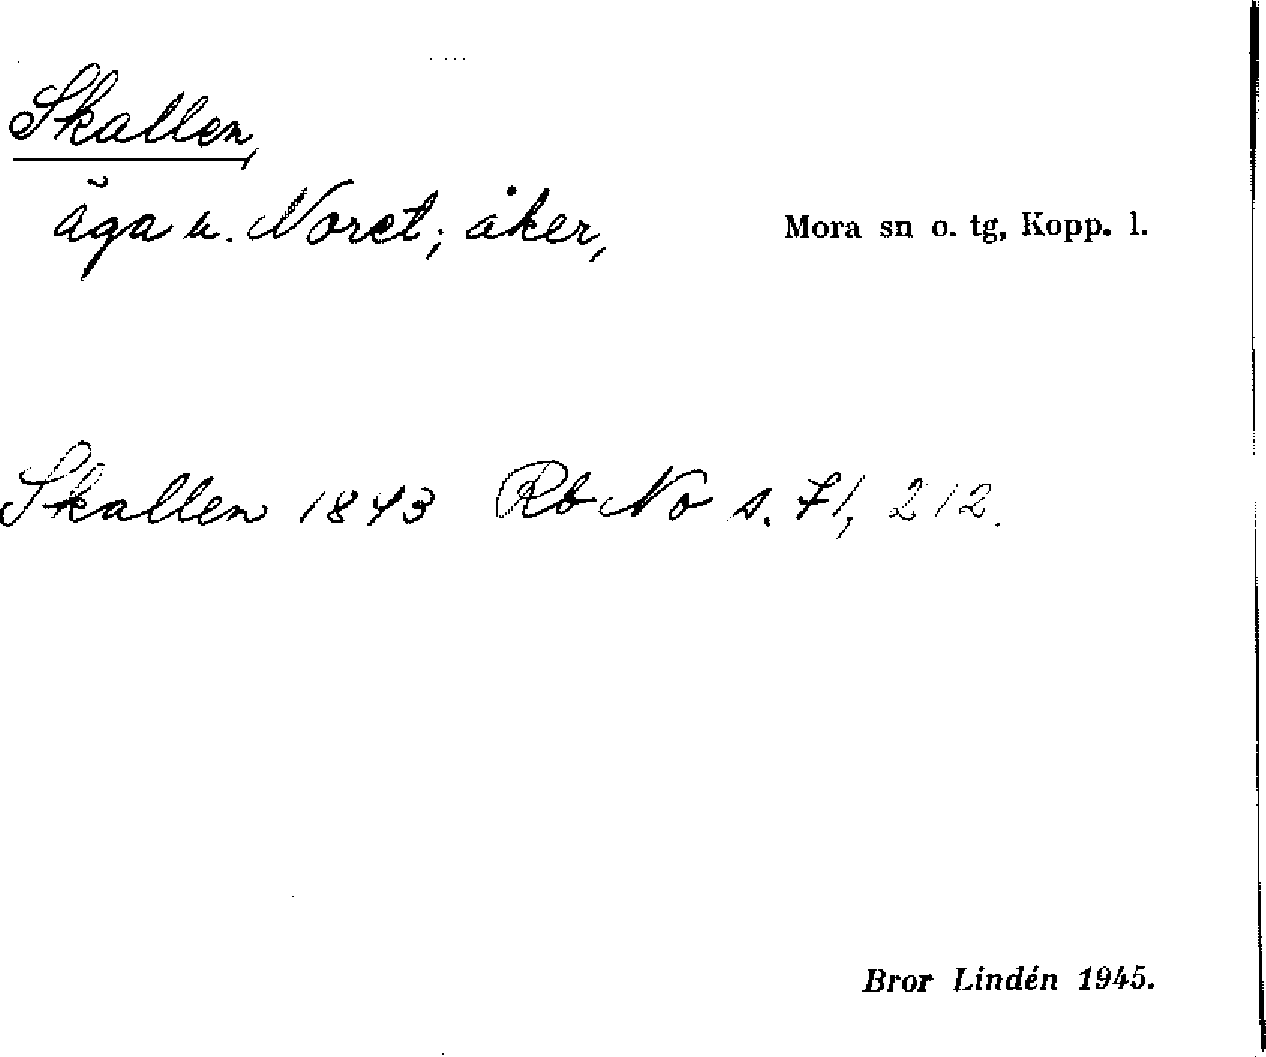 Skallen,
äga u. Noret; åker, Mora sn o. tg, Kopp. l.
Skallen 1843 Rb No s. 71, 212.
Bror Lindén 1945.